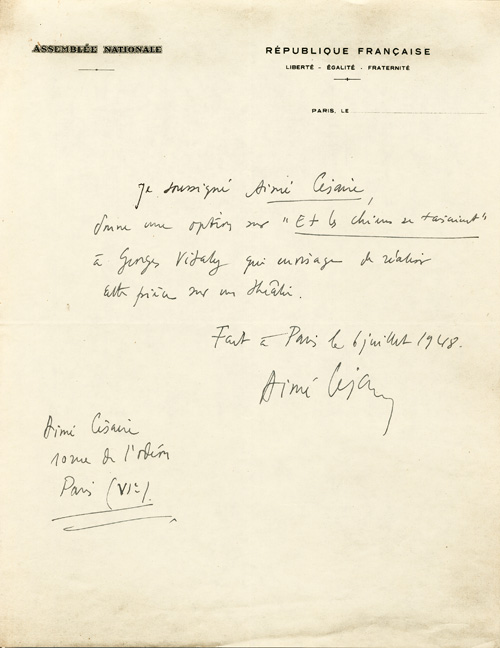 ASSEMBLÉE NATIONALE
RÉPUBLIQUE FRANÇAISE
LIBERTÉ - ÉGALITÉ - FRATERNITÉ
PARIS, LE
Je soussigné Aimé Césaire,
donne une option sur "Et les chiens se taisaient"
à Georges Vitaly qui envisage de réaliser
cette pièce sur un théâtre.
Fait à Paris le 6 juillet 1948.
Aimé Césaire
Aimé Césaire
10 rue de l'odéon
Paris (VIe).